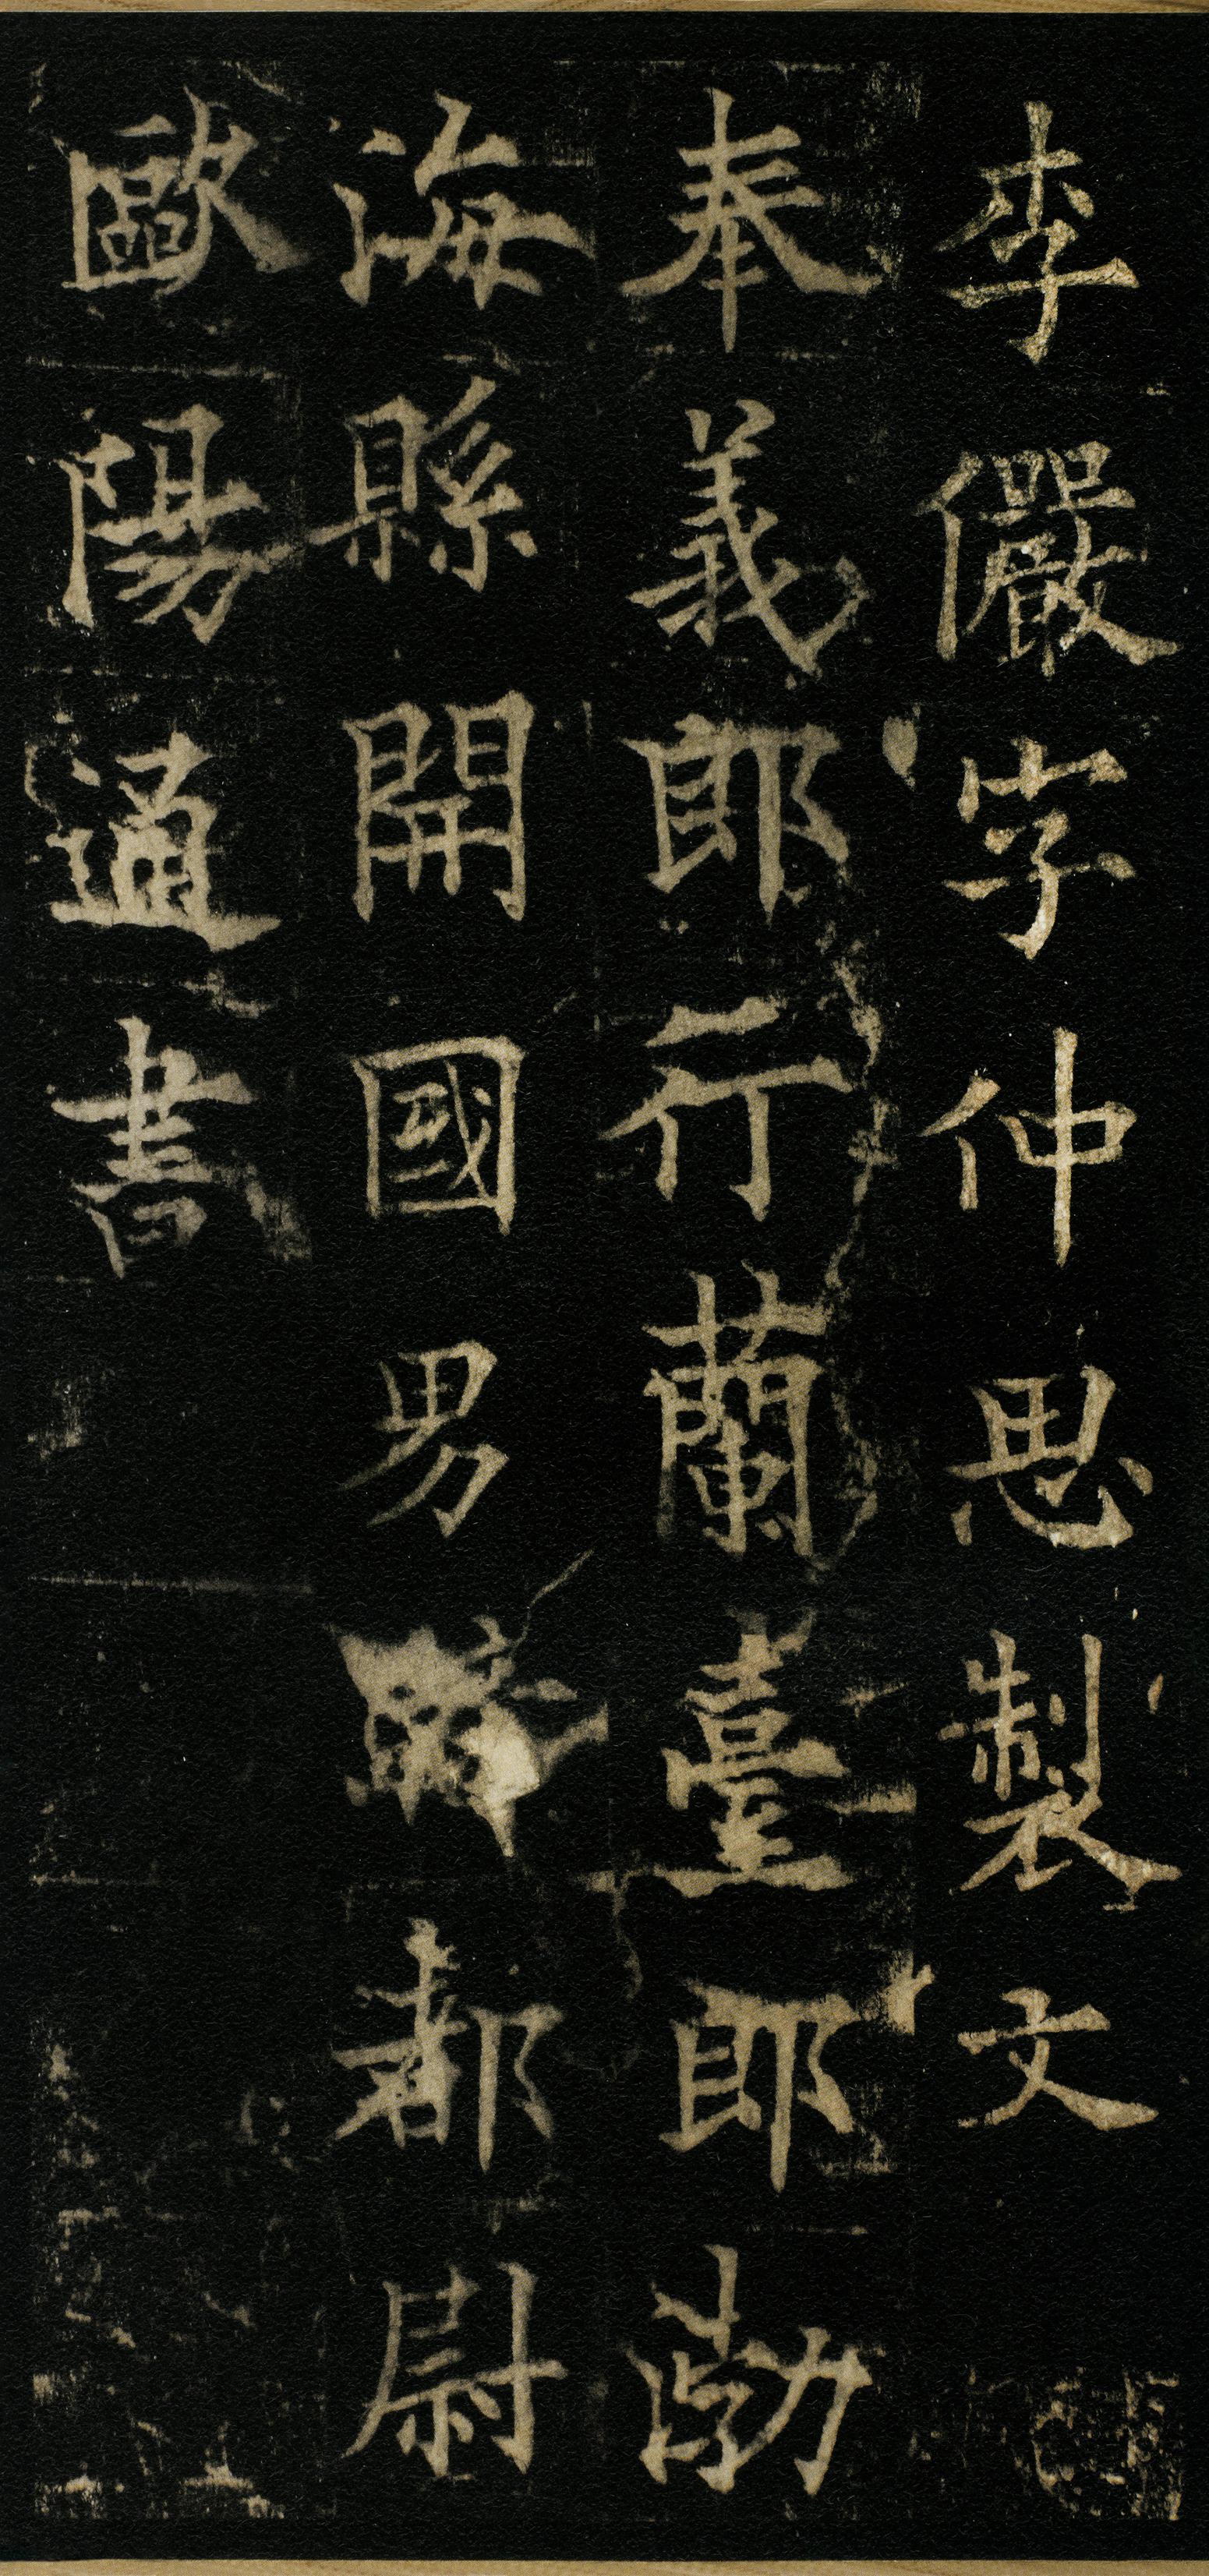 李儼字仲思製文
奉義郎行蘭臺郎渤
海縣開國男騎都尉
歐陽通書